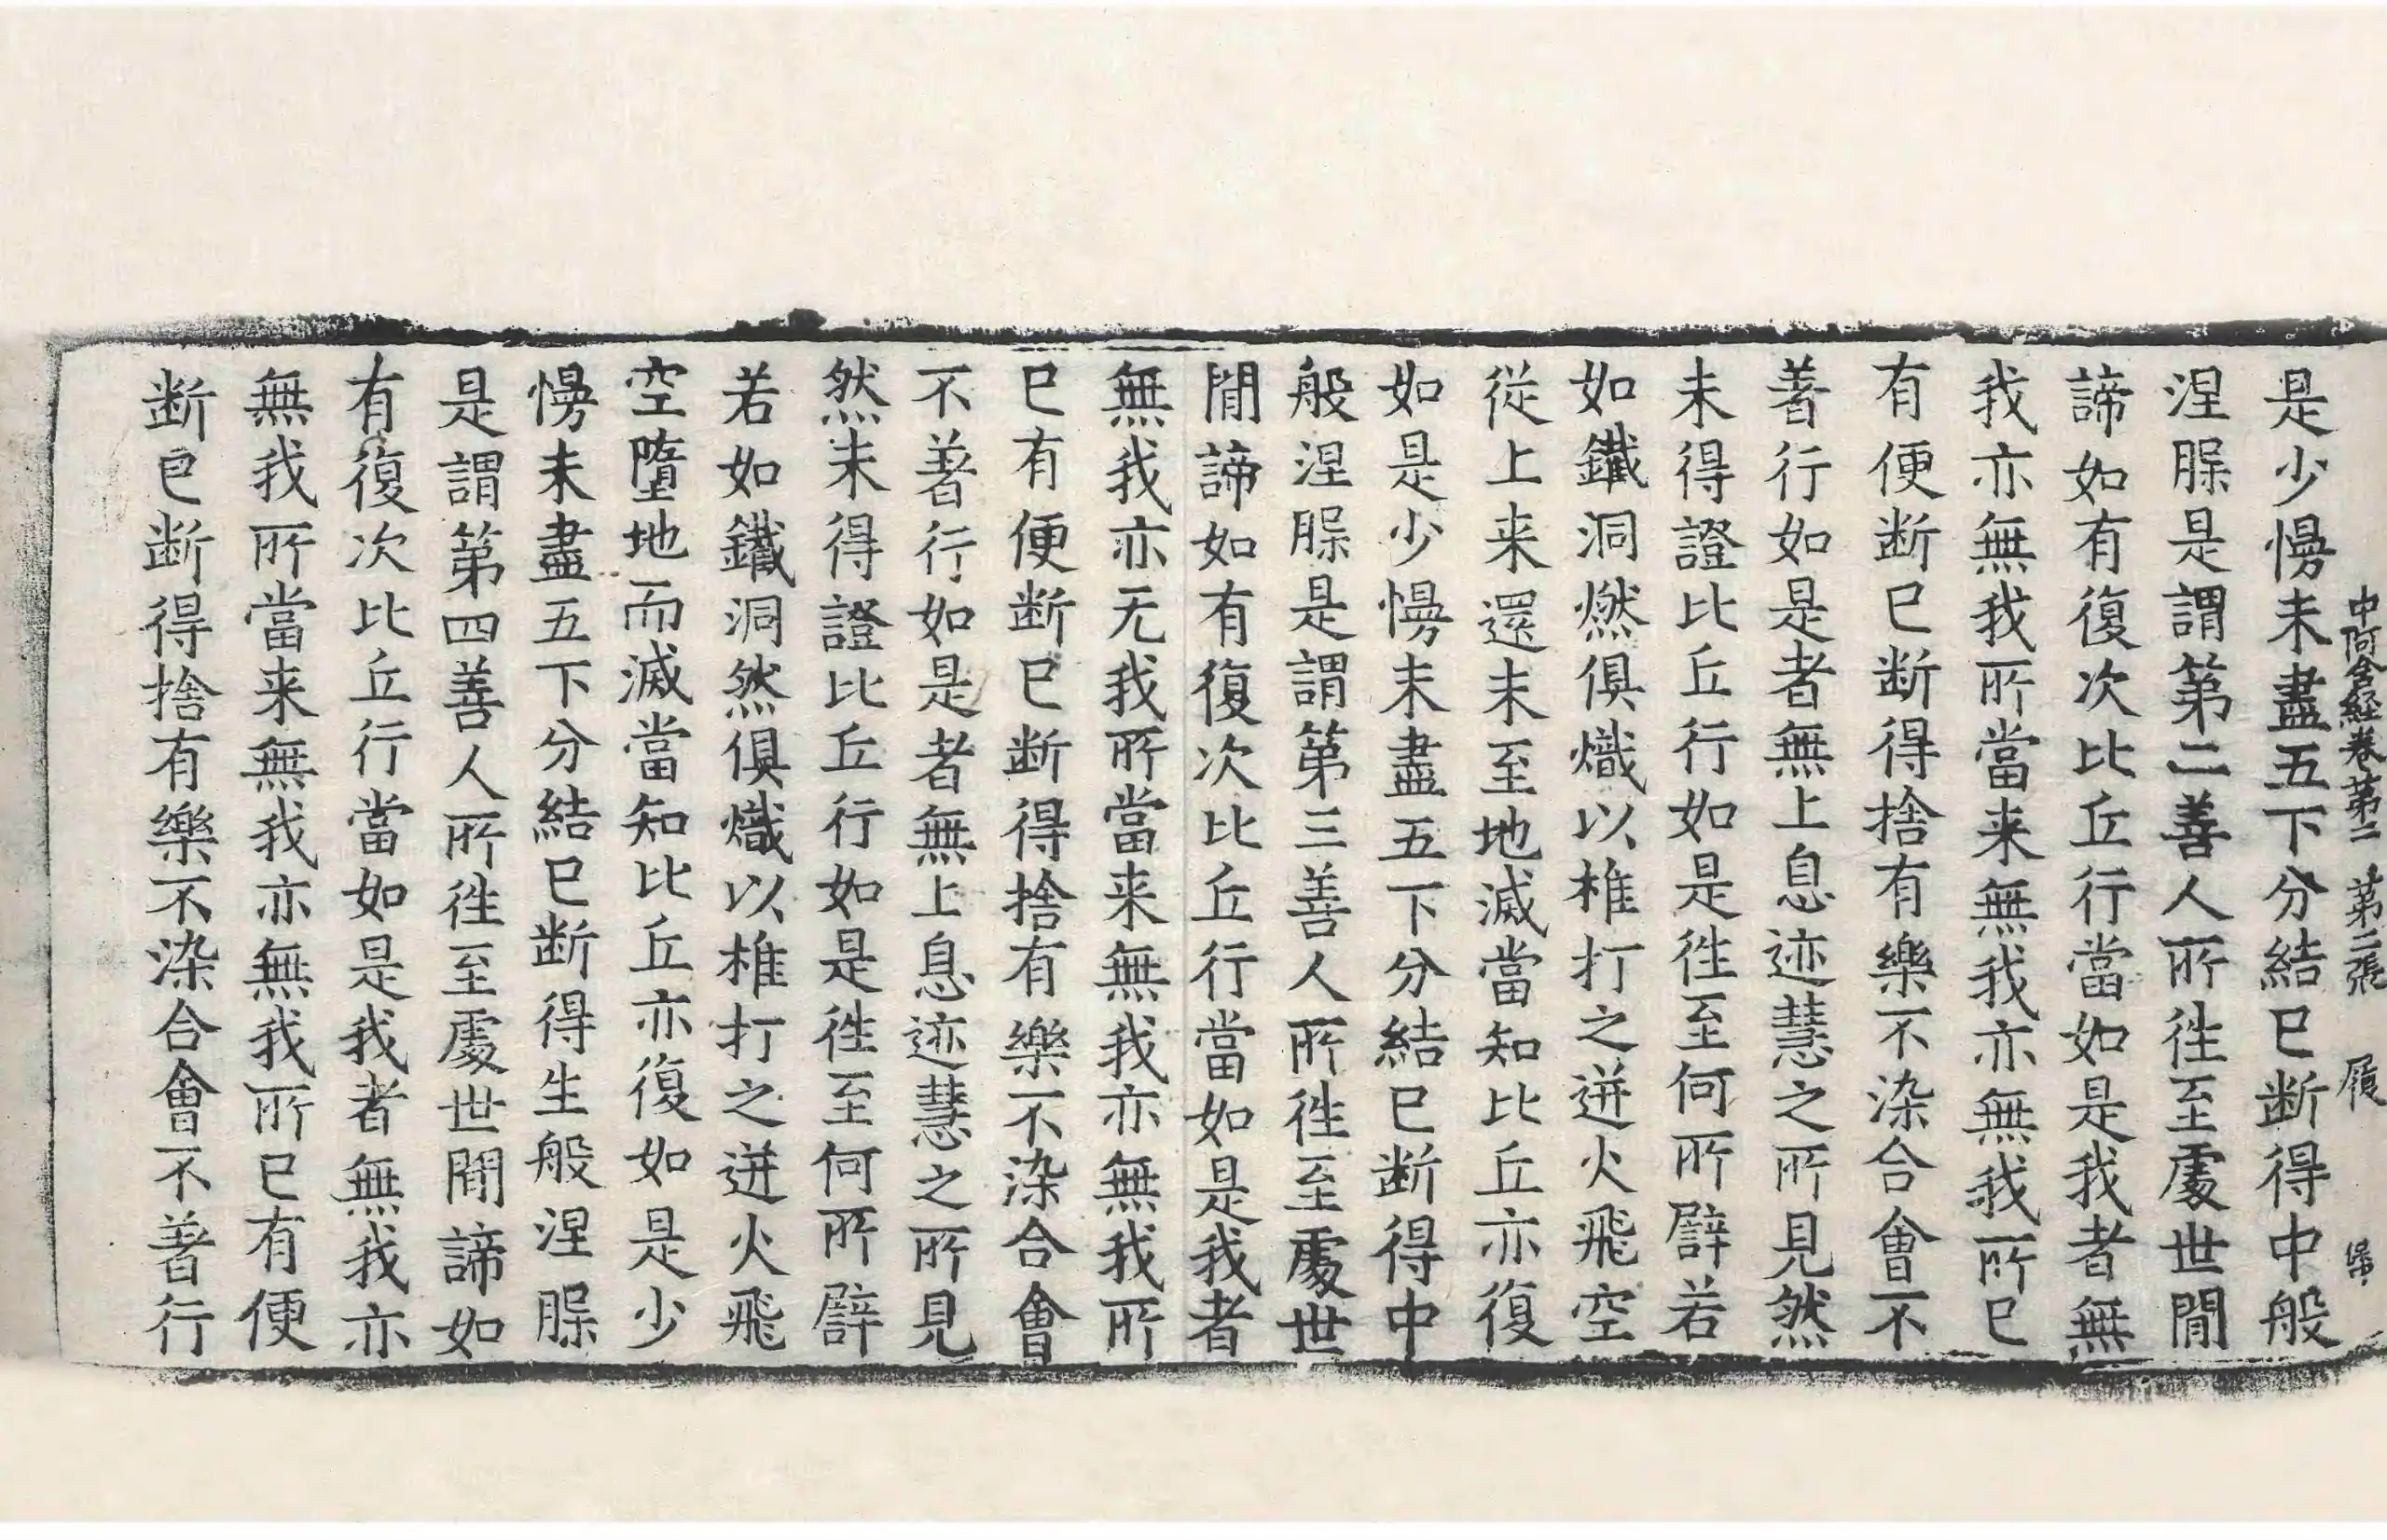 中阿含経卷第二　第二張　履　㷌
是少慢未盡五下分結已断得中般
涅槃是謂第二善人所徃至處世間
諦如有復次比丘行當如是我者無
我亦無我所當来無我亦無我所已
有便断已断得捨有樂不染合會不
著行如是者無上息迹慧之所見然
未得證比丘行如是徃至何所譬若
如鐵洞燃俱熾以椎打之迸火飛空
從上来還未至地滅當知比丘亦復
如是少慢未盡五下分結已断得中
般涅槃是謂第三善人所徃至處世
間諦如有復次比丘行當如是我者
無我亦无我所當来無我亦無我所
已有便断已断得捨有樂不染合會
不著行如是者無上息迹慧之所見
然未得證比丘行如是徃至何所譬
若如鐵洞然俱熾以椎打之迸火飛
空墮地而滅當知比丘亦復如是少
慢未盡五下分結已断得生般涅槃
是謂第四善人所徃至處世間諦如
有復次比丘行當如是我者無我亦
無我所當来無我亦無我所已有便
断已断得捨有樂不染合會不著行